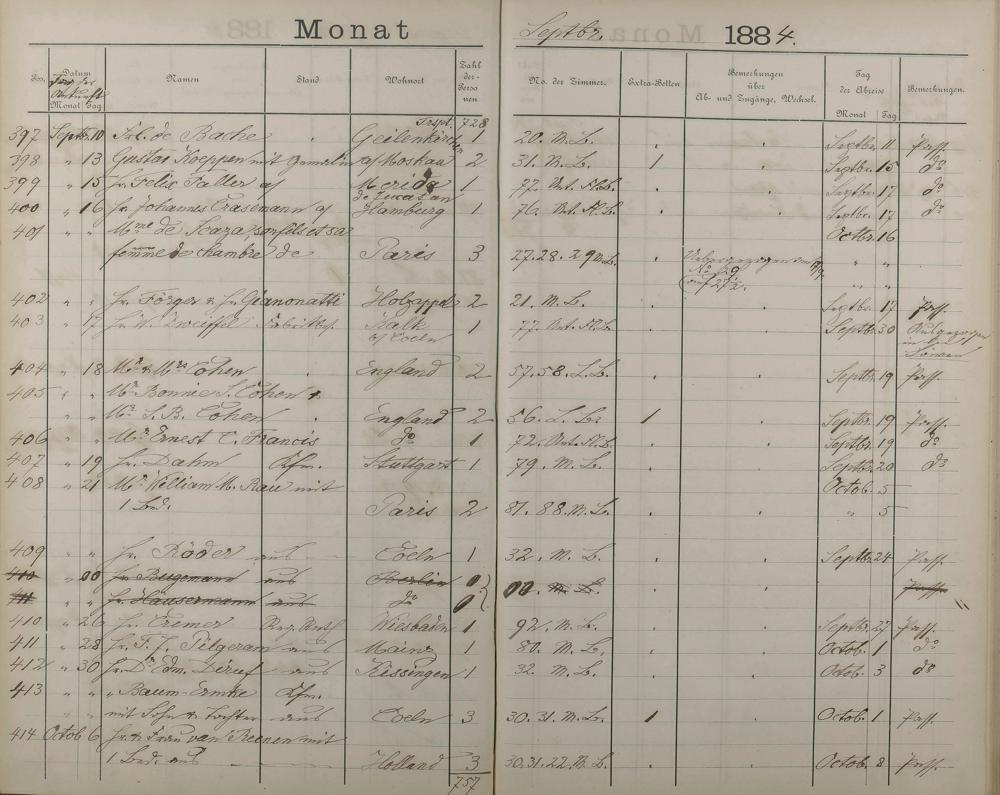 Monat Septbr. 1884.
Pos. Datum der Ankunft Namen Stand Wohnort Zahl der Personen No. der Zimmer. Extra-Betten Bemerkungen über Ab- und Zugänge, Wechsel. Tag der Abreise Bemerkungen.
Monat Tag Monat Tag
Trspt. 728
397 Septbr. 10 Frl. de Bache Geilenkirchen 1 20. M.B. Septbr. 11 Pass.
398 " 13 Gustav Koeppen mit Gemalin a/ Moskau 2 31. M.B. 1 Septbr. 15 do
399 " 15 Hr. Felix Faller a/ Merida 1 77. Ant. M.B. Septbr. 17 do
de Jucatan
400 " 16 Hr. Johannes Crasemann a/ Hamburg 1 76. Ant. M.B. Septbr. 17 do
401 " " Mme de Scaza, son fils et sa Octbr. 16
femme de chambre de Paris 3 27.28.29 M.B. " "
No 29
402 " " Hr. Förger & Hr. Gianonatti Holzappel 2 21. M.B. Septbr. 17 Pass.
403 " 17 Hr. W. Zweiffel Fabritbes. Kalk 1 77. Ant. M.B. Septbr. 30 Ausgezogen
b/ Coeln in den
Löwen
404 " 18 Mr & Mrs Cohen England 2 57.58. L.B. Septbr. 19 Pass.
405 " " Mr Bonnie S. Cohen &
Mr. S. B. Cohen England 2 56. L.B. 1 Septbr. 19 Pass.
406 " " Mr. Ernest C. Francis do 1 72. Ant. M.B. Septbr. 19 do
407 " 19 Hr. Dahm Kfm. Stuttgart 1 79. M.B. Septbr. 20 do
408 " 21 Mr. William M. Rau mit Octob. 5
1 Bed. Paris 2 87. 88. M.B. " 5
409 " " Hr. Röder aus Coeln 1 32. M.B. Septbr. 24 Pass.
410 " 00 Hr. Bugemann aus Berlin 0 00. M.B. Pass.
411 " " Hr. Häusermann aus do 0 "
410 " 26 Hr. Cremer Reg. Rath Wiesbaden 1 92. M.B. Septbr. 27 Pass.
411 " 28 Hr. F. J. Pilgeram aus Mainz 1 80. M.B. Octob. 1 do
412 " 30 Hr. Dr Edm. Diruf aus Kissingen 1 32. M.B. Octob. 3 do
413 " " " Baum-Ermke Kfm.
" " mit Sohn & Tochter aus Coeln 3 30.31. M.B. 1 Octob. 1 Pass.
414 Octob 6 Hr. & Frau van Reenen mit
1 Bed. aus Holland 3 30.31.22 M.B. Octob. 8 Pass.
757